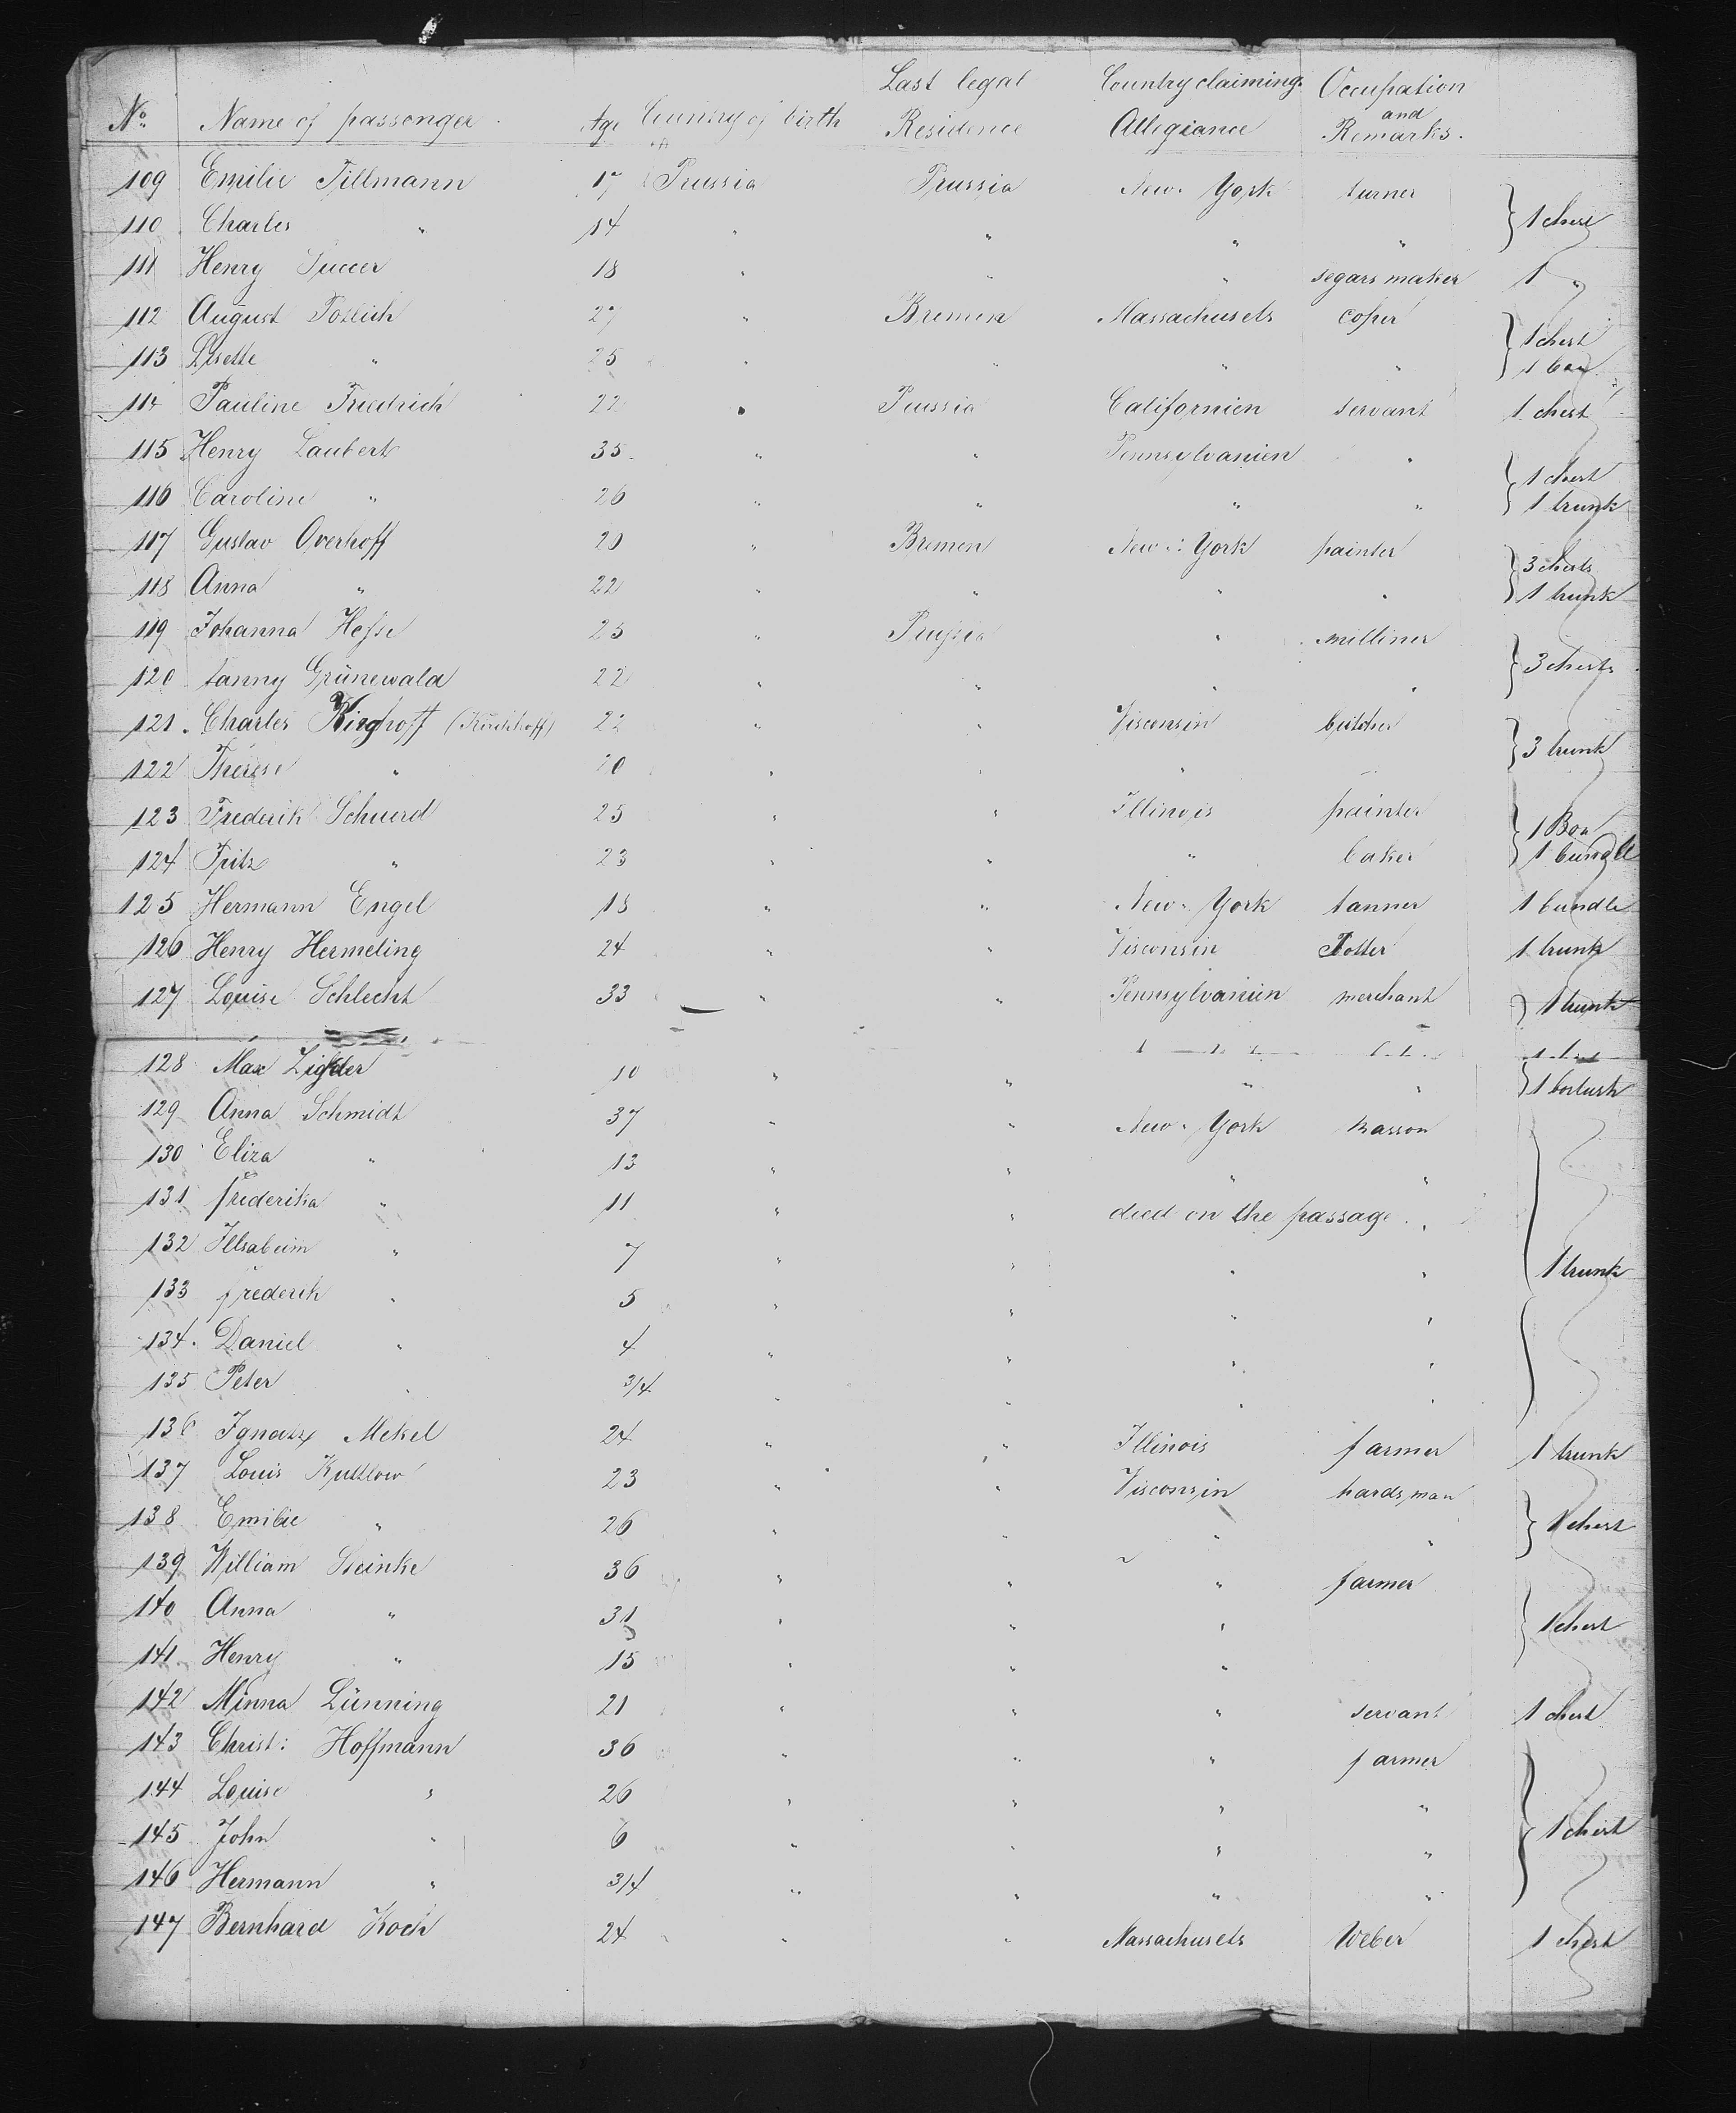 No. Name of passenger Age Country of birth Last legal Residence Country claiming Allegiance Occupation and Remarks.
109 Emilie Tillmann 17 Prussia Prussia New-York turner
110 Charles " 14 " " " " } 1 chest
111 Henry 18 " " " segars maker 1 "
112 August 27 " Bremen Massachusets coper } 1 chest
113 Lisette " 25 " " " " 1 box
114 Pauline Friedrich 22 " Prussia Californien servant 1 chest
115 Henry Laubert 35 " " Pennsylvanien " } 1 chest
116 Caroline " 26 " " " " 1 trunk
117 Gustav Overhoff 20 " Bremen New-York painter } 3 chests
118 Anna " 22 " " " " 1 trunk
119 Johanna Hesse 25 " Prussia " milliner } 3 chests
120 Fanny Grünewald 22 " " " "
121 Charles Kirghoff (Kirchhoff) 22 " " Visconsin butcher } 3 trunk
122 Therese " 20 " " " "
123 Frederik Schuerd 25 " " Illinois painter } 1 Box
124 Fritz " 23 " " " baker 1 bundle
125 Hermann Engel 18 " " New-York tanner 1 bundle
126 Henry Hermeling 24 " " Visconsin Potter 1 trunk
127 Louise Schlecht 33 " " Pennsylvanien merchant } 1 trunk
128 Max 10 " " " "
129 Anna Schmidt 37 " " New-York masson
130 Eliza " 13 " " " "
131 frederika " 11 " " died on the passage "
132 " 7 " " " " 1 trunk
133 frederik " 5 " " " "
134 Daniel " 4 " " " "
135 Peter " 3/4 " " " "
136 Ignatz Mekel 24 " " Illinois farmer 1 trunk
137 Louis Kuttlow 23 " " Visconsin hardsman } 1 chest
138 Emilie " 26 " " " "
139 William Steinke 36 " " " farmer
140 Anna " 31 " " " } 1 chest
141 Henry " 15 " " "
142 Minna Lünning 21 " " " servant 1 chest
143 Christ: Hoffmann 36 " " " farmer
144 Louise " 26 " " " "
145 John " 6 " " " " } 1 chest
146 Hermann " 3/4 " " " "
147 Bernhard Koch 24 " " Massachusets Weber 1 chest